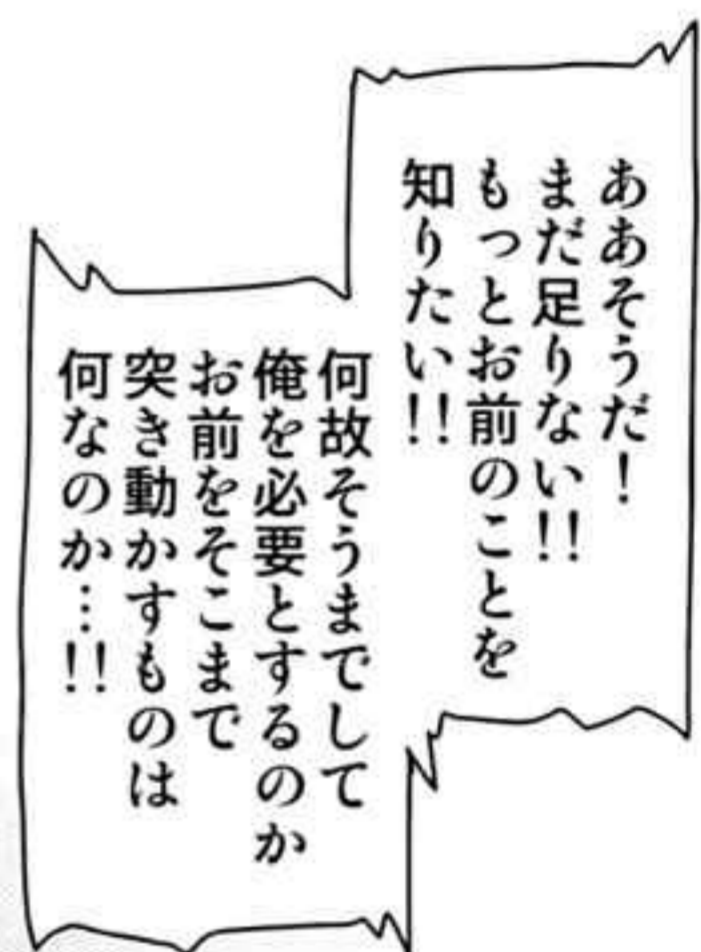 ああそうだ！
まだ足りない!!
もっとお前のことを
知りたい!!
何故そうまでして
俺を必要とするのか
お前をそこまで
突き動かすものは
何なのか…!!